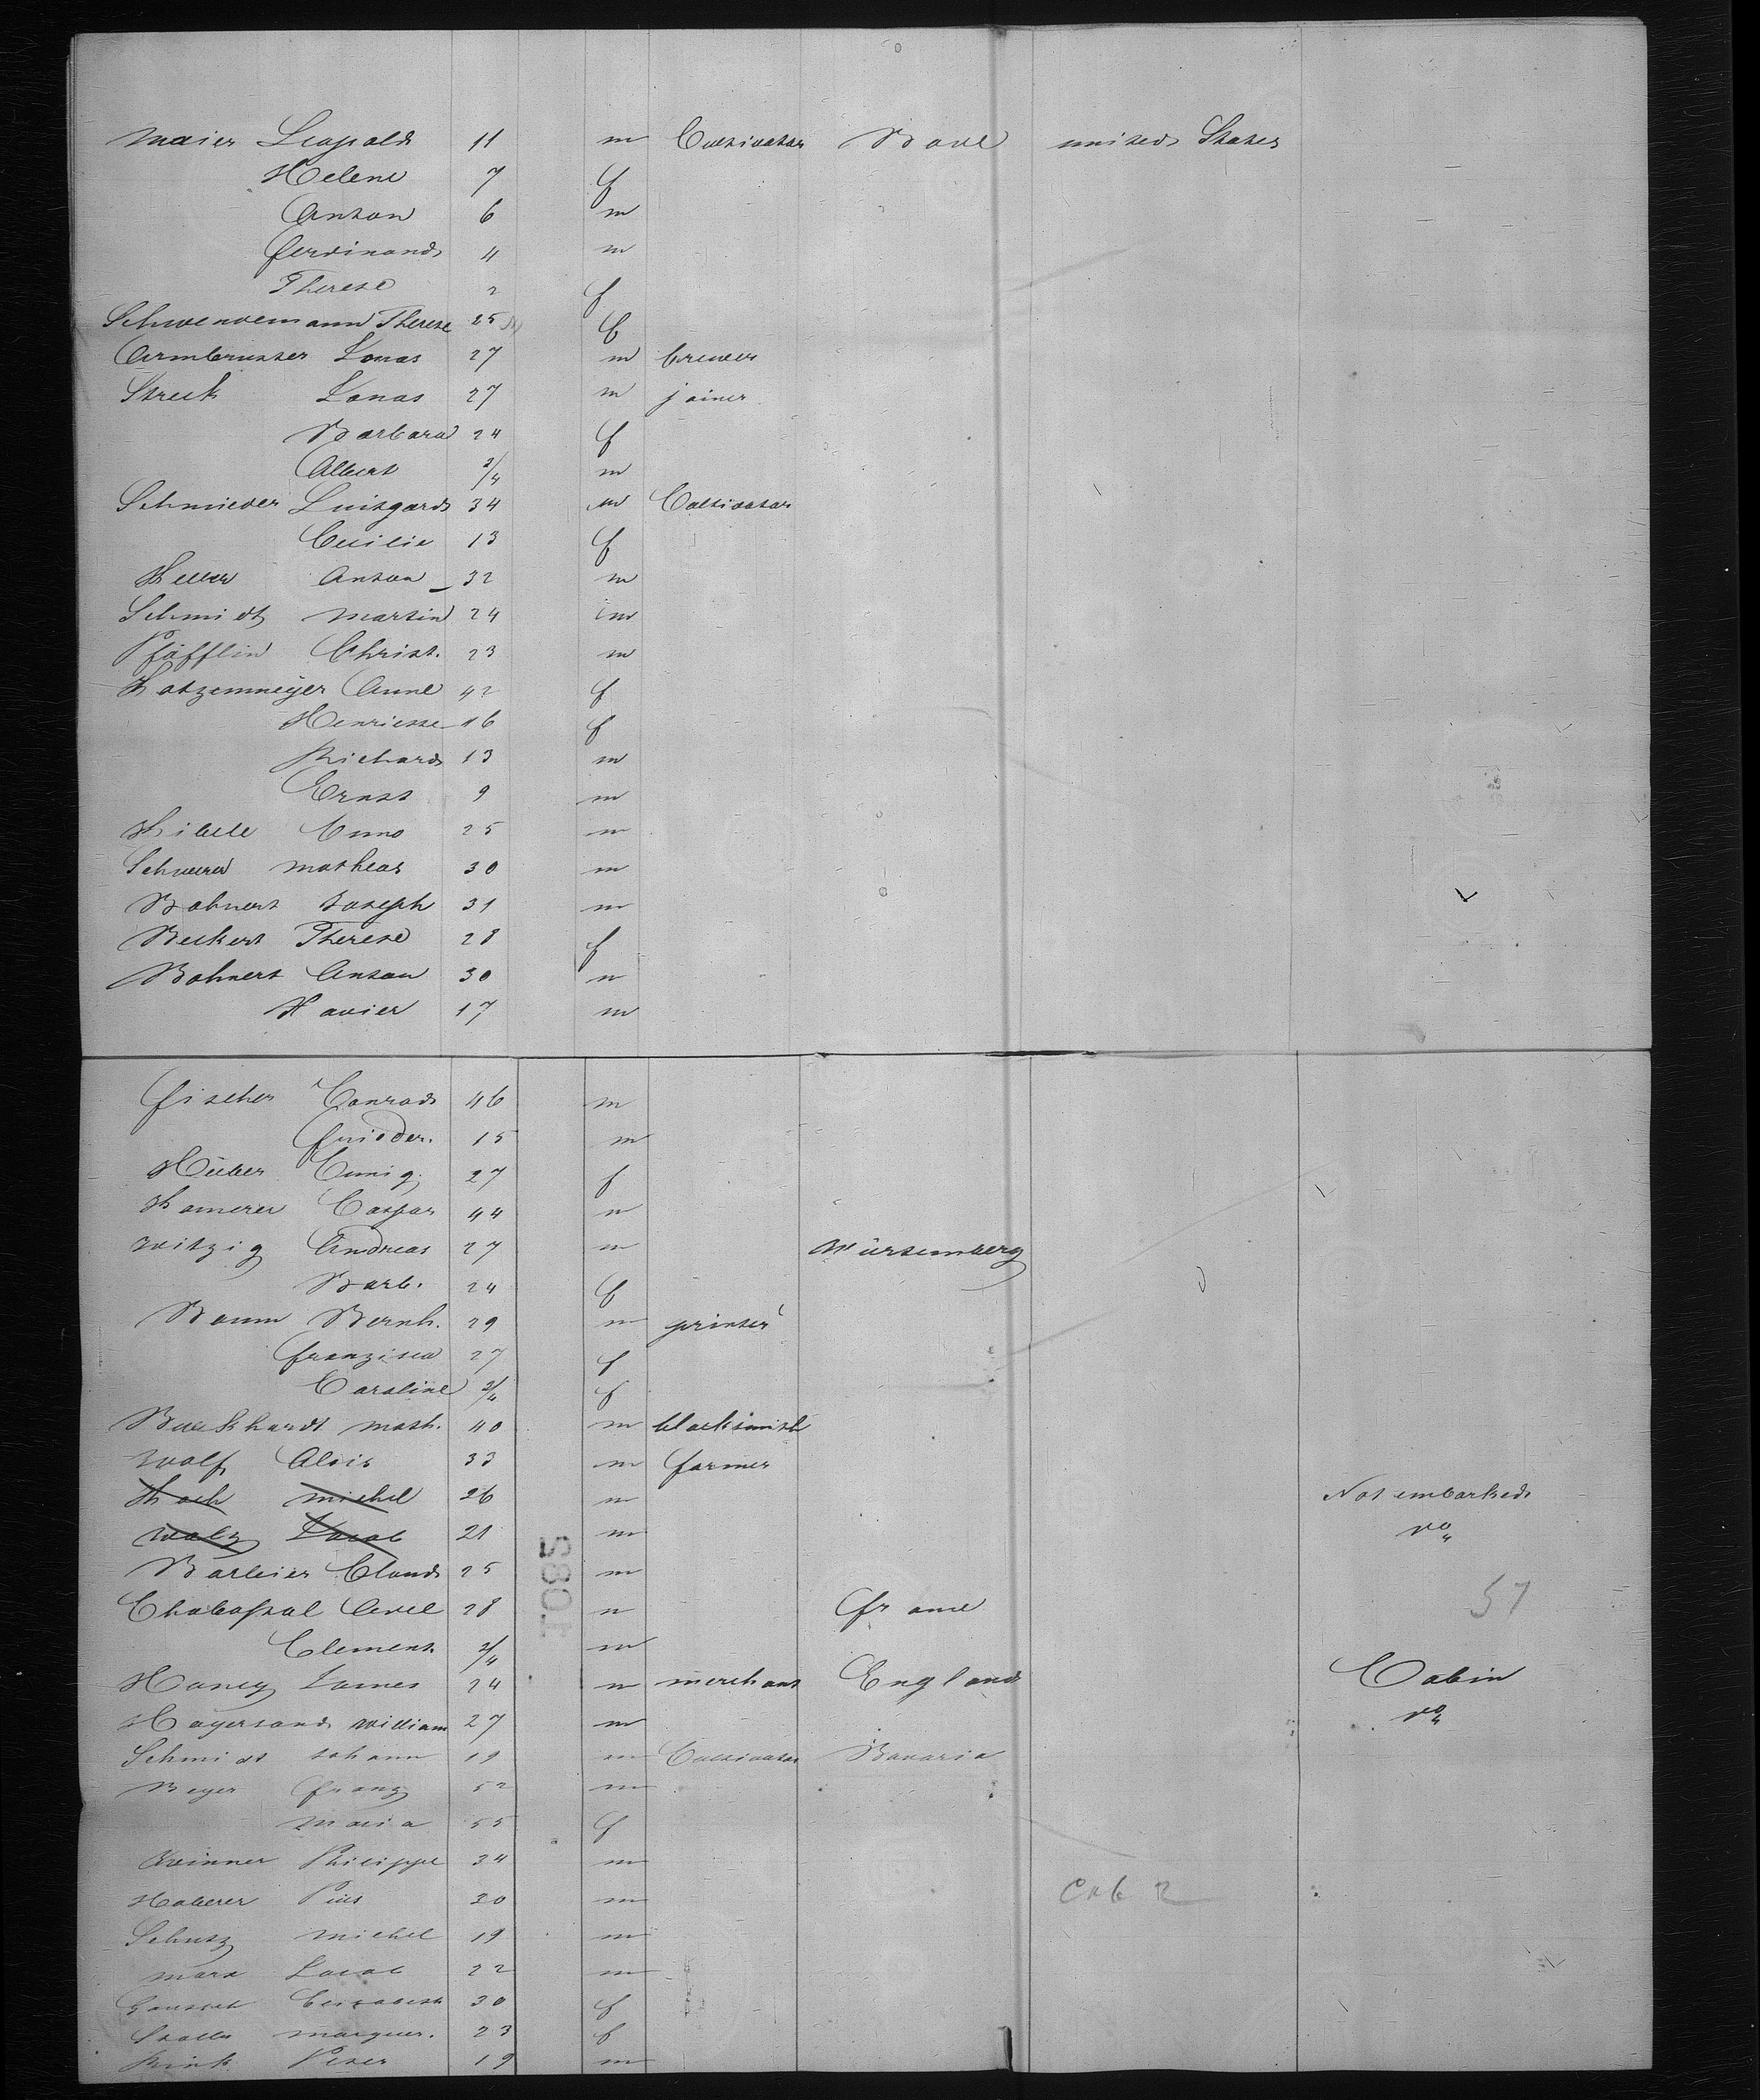 Maier Leopold 11 m Cultivator Bade united States
Helene 7 f
Anton 6 m
Ferdinand 4 m
Therese 2 f
Schwendemann Therese 25 f
Armbruster Lonas 27 m brewer
Streck Lonas 27 m joiner
Barbara 24 f
Albert 2/4 m
Schmieder Luitgard 34 m Cultivator
Cecilie 13 f
Anton 32 m
Schmidt Martin 24 m
Pfäfflin Christ. 23 m
Katzenmeyer Anne 42 f
Henriette 16 f
Richard 13 m
Ernst 9 m
Cuno 25 m
Mathias 30 m
Bohnert Joseph 31 m
Beckert Therese 28 f
Bohnert Anton 30 m
Xavier 17 m
Fischer Conrad 46 m
Frieder. 15 m
Hüber 27 f
Kamerer Caspar 44 m
Witzig Andreas 27 m Würtemberg
Barb. 24 f
Baum Bernh. 29 m printer
Franzisca 27 f
Caroline 2/4 f
Math. 40 m blacksmith
Wolf Alois 33 m farmer
Koch Michel 26 m Not embarked
Walz Jacob 21 m do
Barbier Claud 25 m
28 m France 57
Clement. 2/4 m
Haney James 24 m merchant England Cabin
William 27 m do
Schmidt Johann 19 m Cultivator Bavaria
Beyer Franz 52 m
Maria 55 f
Philippe 34 m
Haberer Pius 30 m
Schutz Michel 19 m
Marx Jacob 22 m
Elisabeth 30 f
Marguer. 23 f
Rink Peter 19 m
S80.1